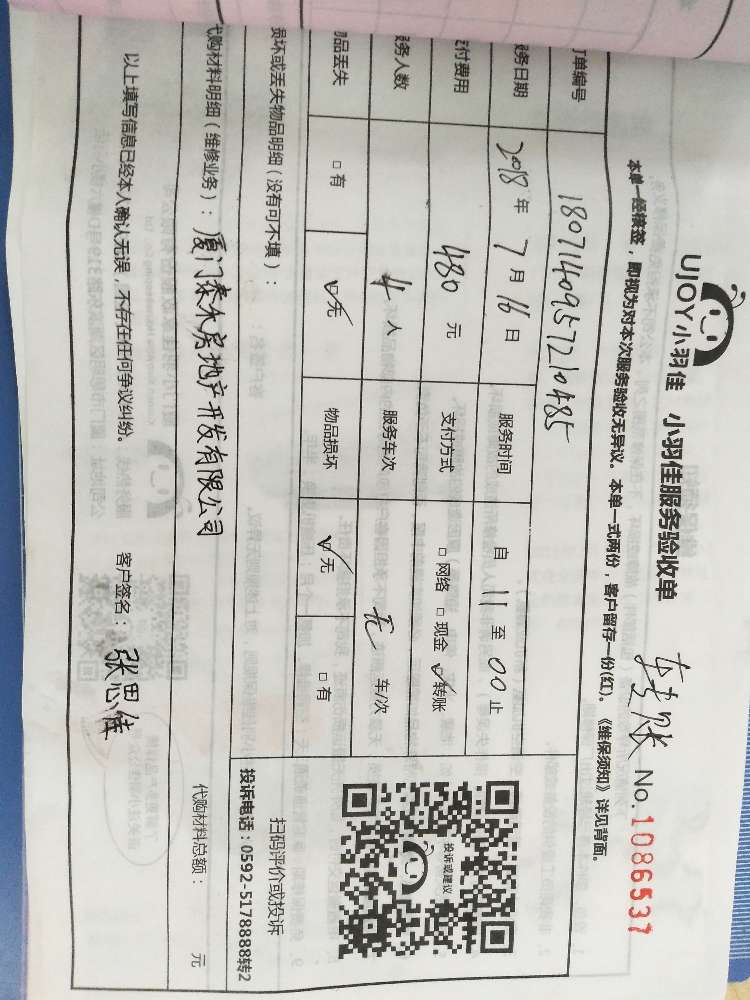 UJOY小羽佳 小羽佳服务验收单 转账 No.1086537
本单一经接签，即视为对本次服务验收无异议。本单一式两份，客户留存一份(红)。《维保须知》详见背面。
订单编号 180714095721 0485
服务日期 2018年7月16日 服务时间 自 11 至 00 止
支付费用 480 元 支付方式 □网络 □现金 ☑转账
服务人数 4 人 服务车次 无 车/次
物品丢失 □有 ☑无 物品损坏 ☑无 □有
投诉或建议
扫码评价或投诉
投诉电话：0592-5178888转2
损坏或丢失物品明细（没有可不填）：
代购材料明细（维修业务）：厦门泰禾房地产开发有限公司 代购材料总额： 元
以上填写信息已经本人确认无误，不存在任何争议纠纷。 客户签名：张思佳